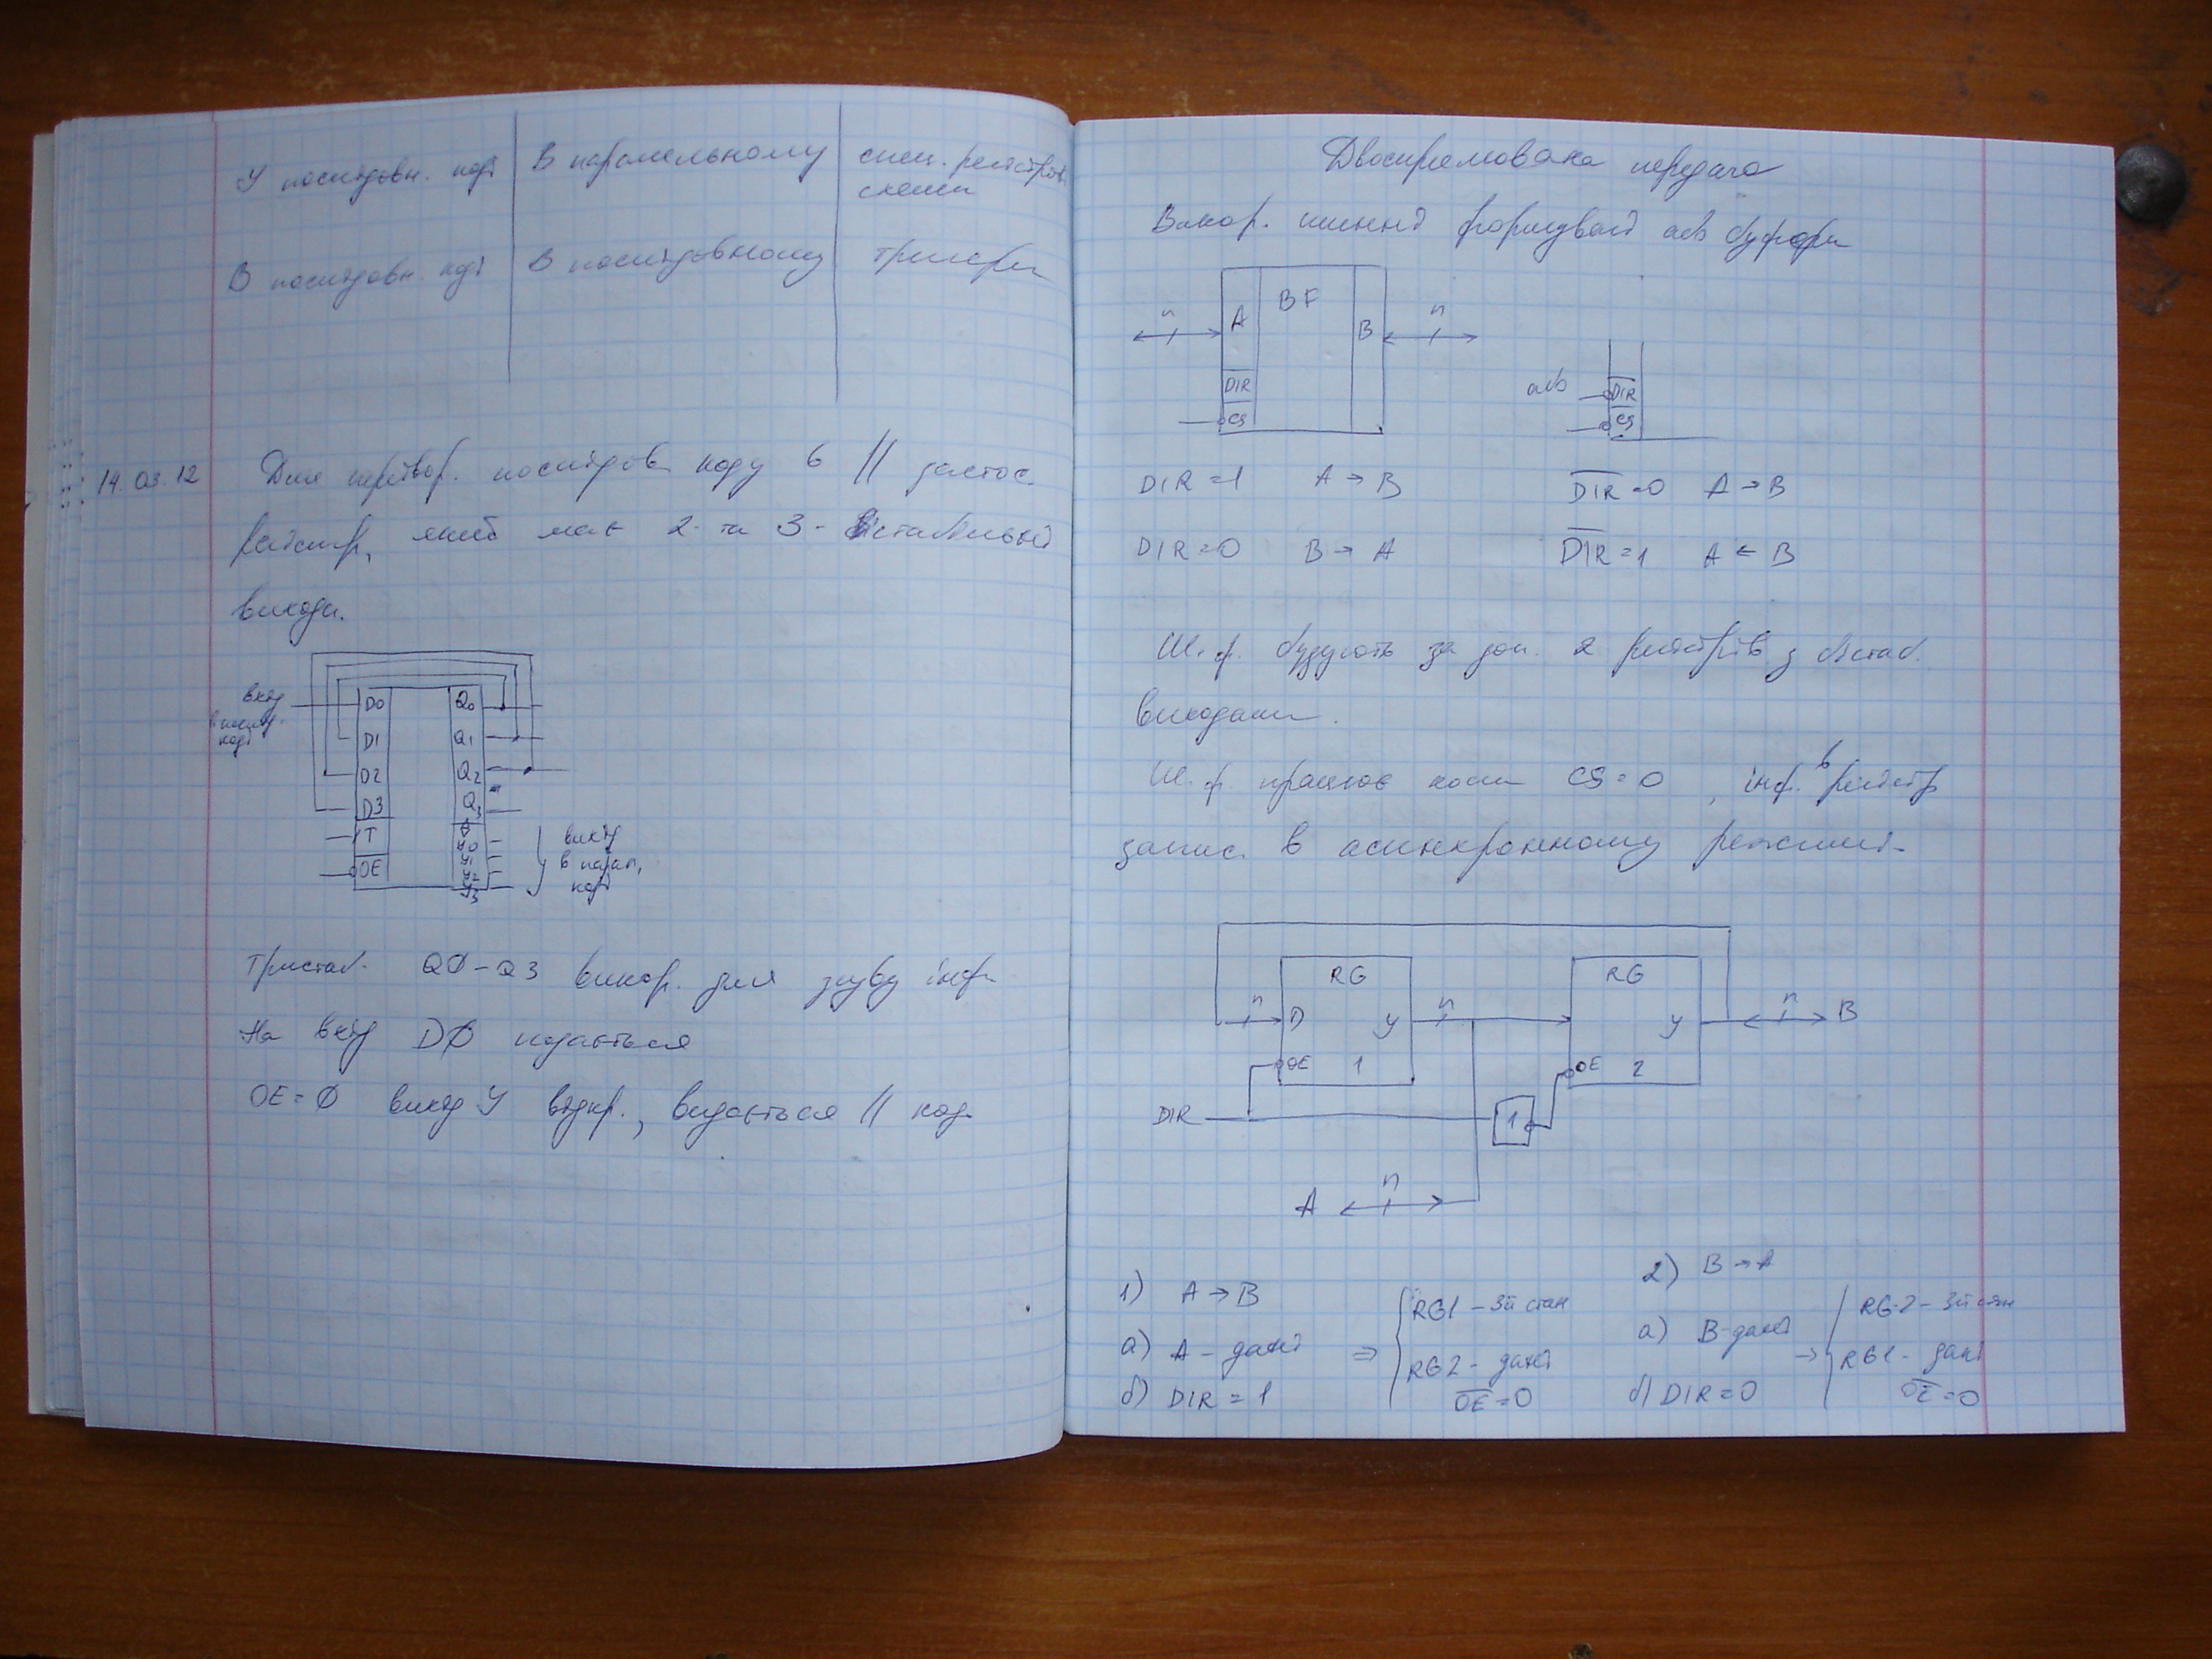 У послідовн. коді
В паралельному
спец. регістров.
схеми
В послідовн. коді
В послідовному
тригери
14.03.12
Для перетвор. послідов. коду в // застос.
регістр, який має 2- та 3- стабільні
виходи.
вхід
в послід.
коді
D0
D1
D2
D3
T
OE
Q0
Q1
Q2
Q3
У0
У1
У2
У3
вихід
в парал.
коді
Тристаб. QØ-Q3 викор. для зсуву інф.
На вхід DØ подається
OE=Ø вихід У відкр., видається // код.
Двоспрямована передача
Викор. шинні формувачі або буфери
n
A
BF
B
n
DIR
CS
або
DIR
CS
DIR=1 A→B
DIR=0 A→B
DIR=0 B→A
DIR=1 A←B
Ш.ф. будують за доп. 2 регістрів з
виходами.
Ш.ф. працює коли CS=0, інф. в регістр
запис. в асинхронному режимі.
RG
RG
n
D
У
n
У
n
B
OE
1
OE
2
DIR
1
A
n
1) A→B
а) A - дані
б) DIR = 1
⇒
RG1 - 3й стан
RG2 - дані
OE=0
2) B→A
а) B-дані
б) DIR=0
→
RG2 - 3й стан
RG1 - дані
OE=0